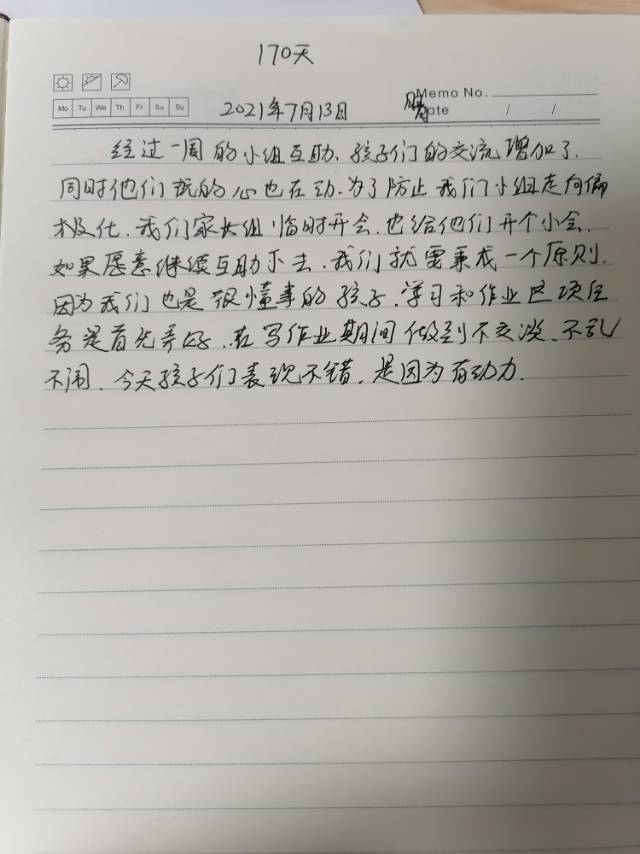 170天
Memo No.
Mo Tu We Th Fr Sa Su
2021年7月13日 晴 Date / /
经过一周的小组互助、孩子们的交流增加了.
同时他们玩的心也在动.为了防止我们小组走向偏
极化.我们家长组临时开会.也给他们开个小会.
如果愿意继续互助下去.我们就需秉成一个原则.
因为我们也是很懂事的孩子.学习和作业这项任
务是首先弄好.在写作业期间做到不交谈、不乱
不闹.今天孩子们表现不错.是因为有动力.